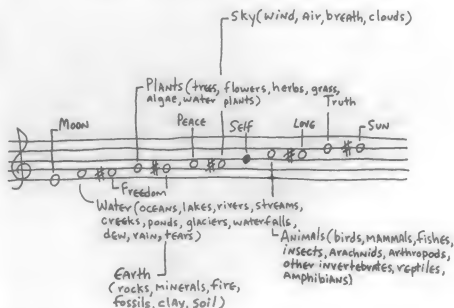 Sky (wind, air, breath, clouds)
Plants (trees, flowers, herbs, grass,
algae, water plants)
Moon
Peace
Self
Love
Truth
Sun
Freedom
Water (oceans, lakes, rivers, streams,
creeks, ponds, glaciers, waterfalls,
dew, rain, tears)
Animals (birds, mammals, fishes,
insects, Arachnids, Arthropods,
other invertebrates, reptiles,
Amphibians)
Earth
(rocks, minerals, fire,
fossils, clay, soil)